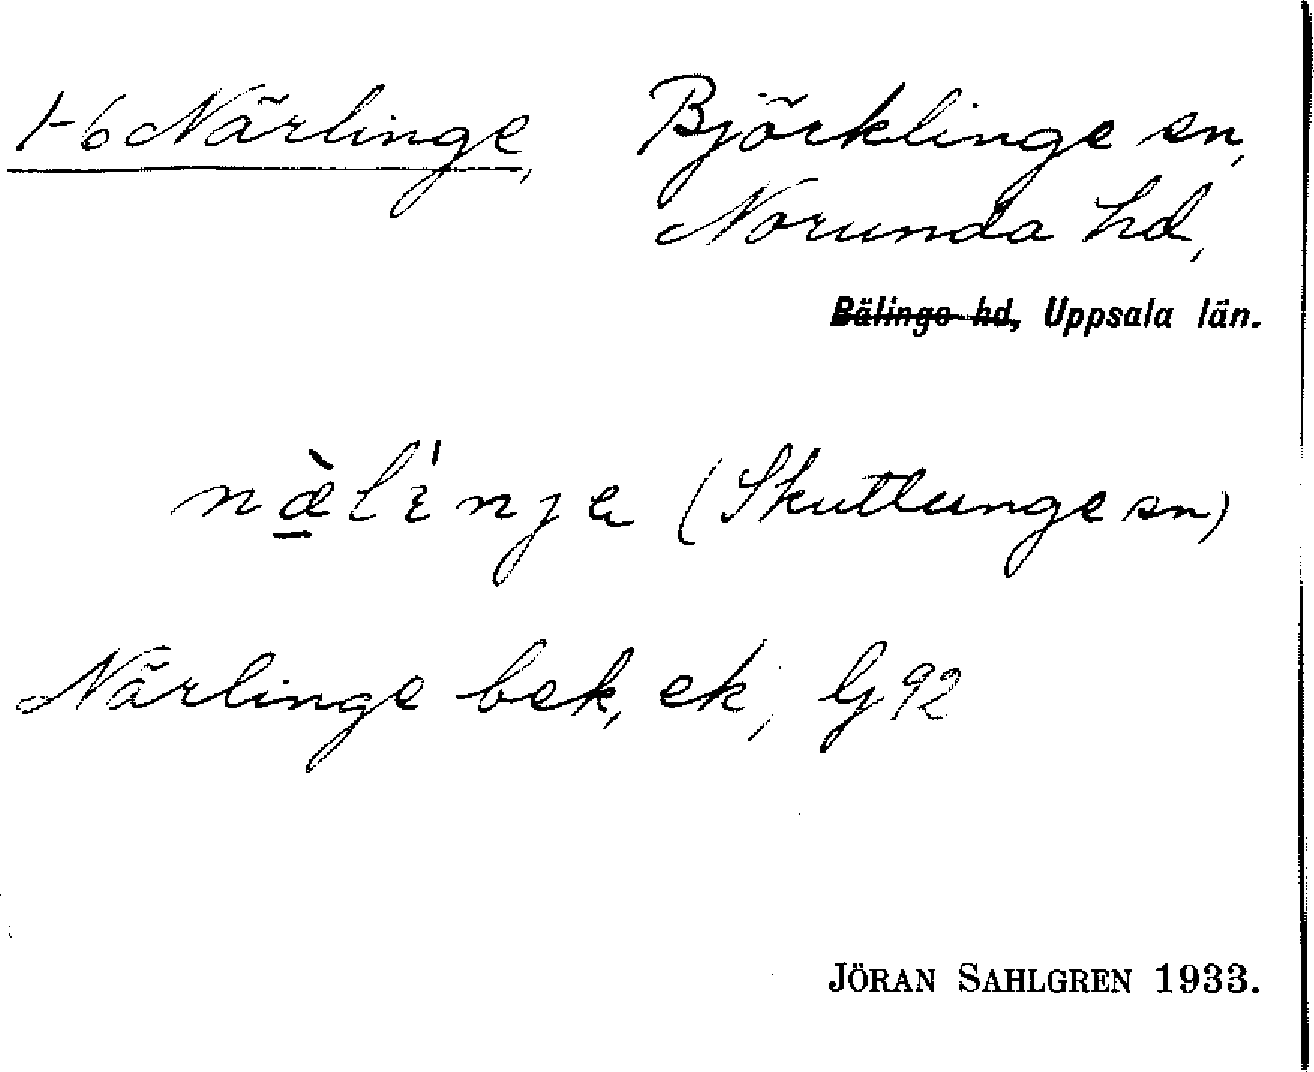 1-6 Närlinge, Björklinge sn,
Norunda hd,
Bälinge hd, Uppsala län.
næ̠̀lɩ́nje (Skuttunge sn)
Närlinge bek, ek; Lj 92
JÖRAN SAHLGREN 1933.